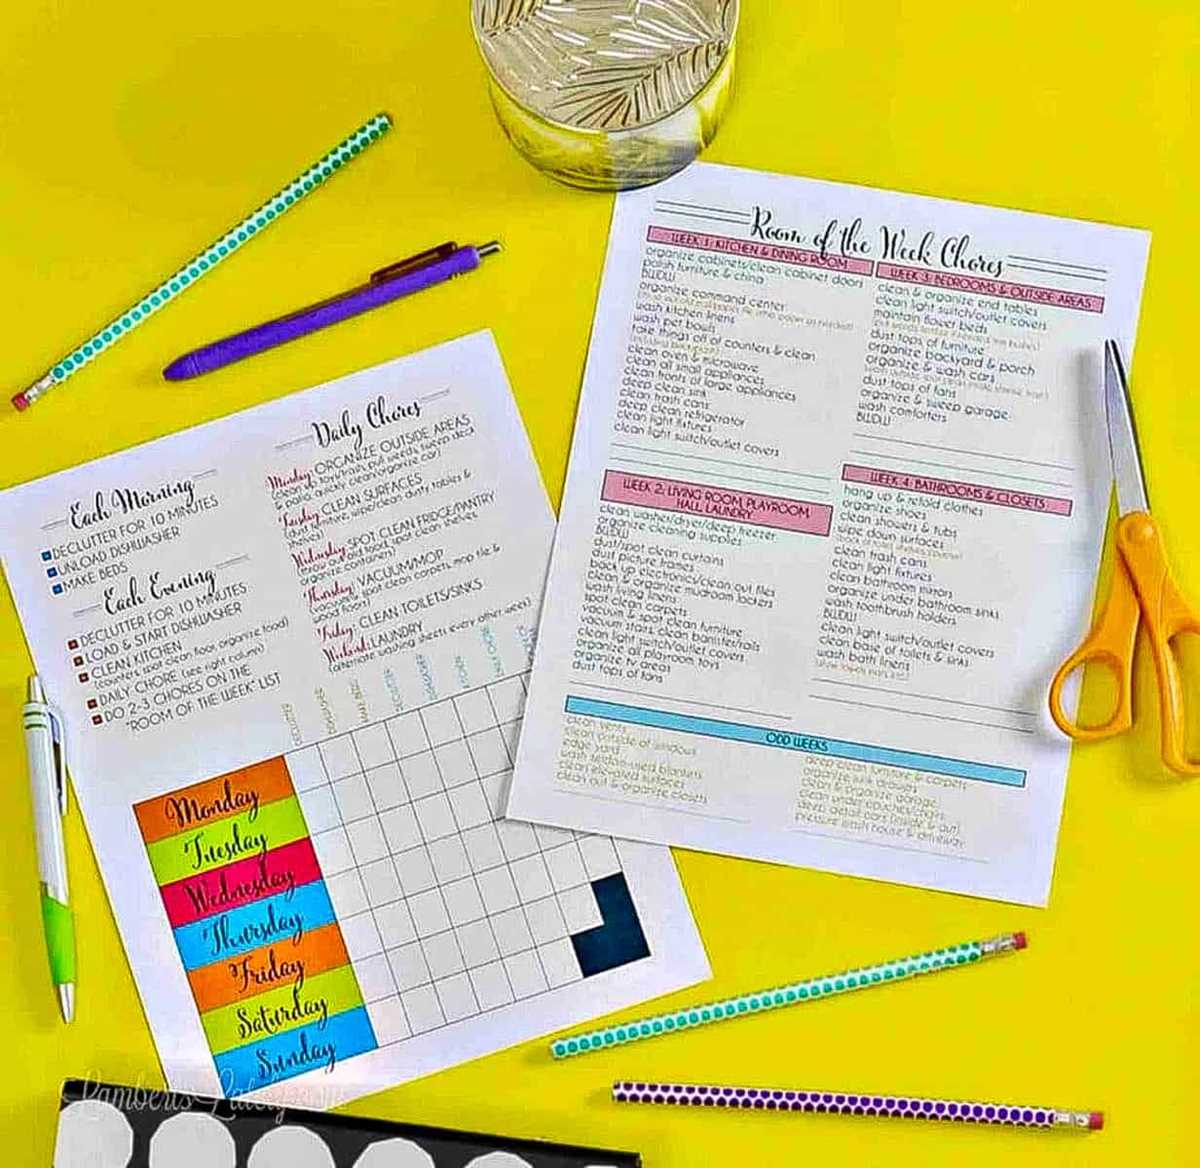 Each Morning
DECLUTTER FOR 10 MINUTES
UNLOAD DISHWASHER
MAKE BEDS
Each Evening
DECLUTTER FOR 10 MINUTES
LOAD & START DISHWASHER
CLEAN KITCHEN
(counters, spot clean floor, organize food)
DAILY CHORE (see right column)
DO 2-3 CHORES ON THE
"ROOM OF THE WEEK" LIST
Daily Chores
Monday: ORGANIZE OUTSIDE AREAS
(clean of toys/trash, pull weeds, sweep deck
& patio, quickly clean/organize car)
Tuesday: CLEAN SURFACES
(dust furniture, wipe/clean dusty tables &
shelves)
Wednesday: SPOT CLEAN FRIDGE/PANTRY
(throw out old food, spot clean shelves,
organize containers)
Thursday: VACUUM/MOP
(vacuum & spot clean carpets, mop tile &
wood floors)
Friday: CLEAN TOILETS/SINKS
Weekend: LAUNDRY
(alternate washing sheets every other week)
Monday
Tuesday
Wednesday
Thursday
Friday
Saturday
Sunday
Room of the Week Chores
WEEK 1: KITCHEN & DINING ROOM
organize cabinets/clean cabinet doors
polish furniture & china
BWDW
organize command center
wash kitchen linens
wash pet bowls
take things off of counters & clean
clean oven & microwave
clean all small appliances
clean fronts of large appliances
deep clean sink
clean trash cans
deep clean refrigerator
clean light fixtures
clean light switch/outlet covers
WEEK 2: LIVING ROOM, PLAYROOM,
HALL, LAUNDRY
clean washer/dryer/deep freezer
organize cleaning supplies
BWDW
dust/spot clean curtains
dust picture frames
back up electronics/clean out files
clean & organize mudroom lockers
wash living linens
spot clean carpets
vacuum & spot clean furniture
vacuum stairs, clean banister/rails
clean light switch/outlet covers
organize all playroom toys
organize tv areas
dust tops of fans
WEEK 3: BEDROOMS & OUTSIDE AREAS
clean & organize end tables
clean light switch/outlet covers
maintain flower beds
dust tops of furniture
organize backyard & porch
organize & wash cars
dust tops of fans
organize & sweep garage
wash comforters
BWDW
WEEK 4: BATHROOMS & CLOSETS
hang up & refold clothes
organize shoes
clean showers & tubs
wipe down surfaces
clean trash cans
clean light fixtures
clean bathroom mirrors
organize under bathroom sinks
wash toothbrush holders
BWDW
clean light switch/outlet covers
clean base of toilets & sinks
wash bath linens
ODD WEEKS
clean vents
clean outside of windows
edge yard
wash seldom-used blankets
clean elevated surfaces
clean out & organize closets
deep clean furniture & carpets
organize junk drawers
clean & organize storage
clean under couch/chairs
deep detail cars (inside & out)
pressure wash house & driveway